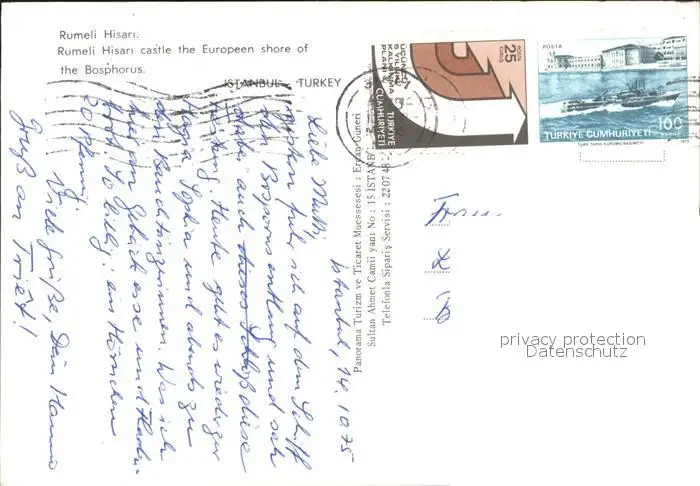 Rumeli Hisarı.
Rumeli Hisarı castle the Europeen shore of
the Bosphorus.
ISTANBUL - TURKEY
POSTA
25
KURUŞ
ÜÇÜNCÜ
5 YILLIK
KALKINMA
PLANI
TÜRKİYE
CUMHURİYETİ
POSTA
100
KURUŞ
TÜRKİYE CUMHURİYETİ
Panorama Turizm ve Ticaret Muessesesi : Ergun Guneri
Sultan Ahmet Camii yanı No : 15 İSTANB
Telefonla Sipariş Servisi : 22 07 48
Istanbul, 14.10.75
Liebe Mutti,
gestern fuhr ich auf dem Schiff
den Bosporus entlang und sah
auch dieses Schloß diese
Heute geht es wieder zur
Hagia Sophia und abends zu
den Bauchtänzerinnen. Was ich
hier an Gebäck esse und
ist so billig: ein Hörnchen
20 Pfennig.
Viele Grüße, Dein Hanno
Gruß an Trief!
Frau
privacy protection
Datenschutz